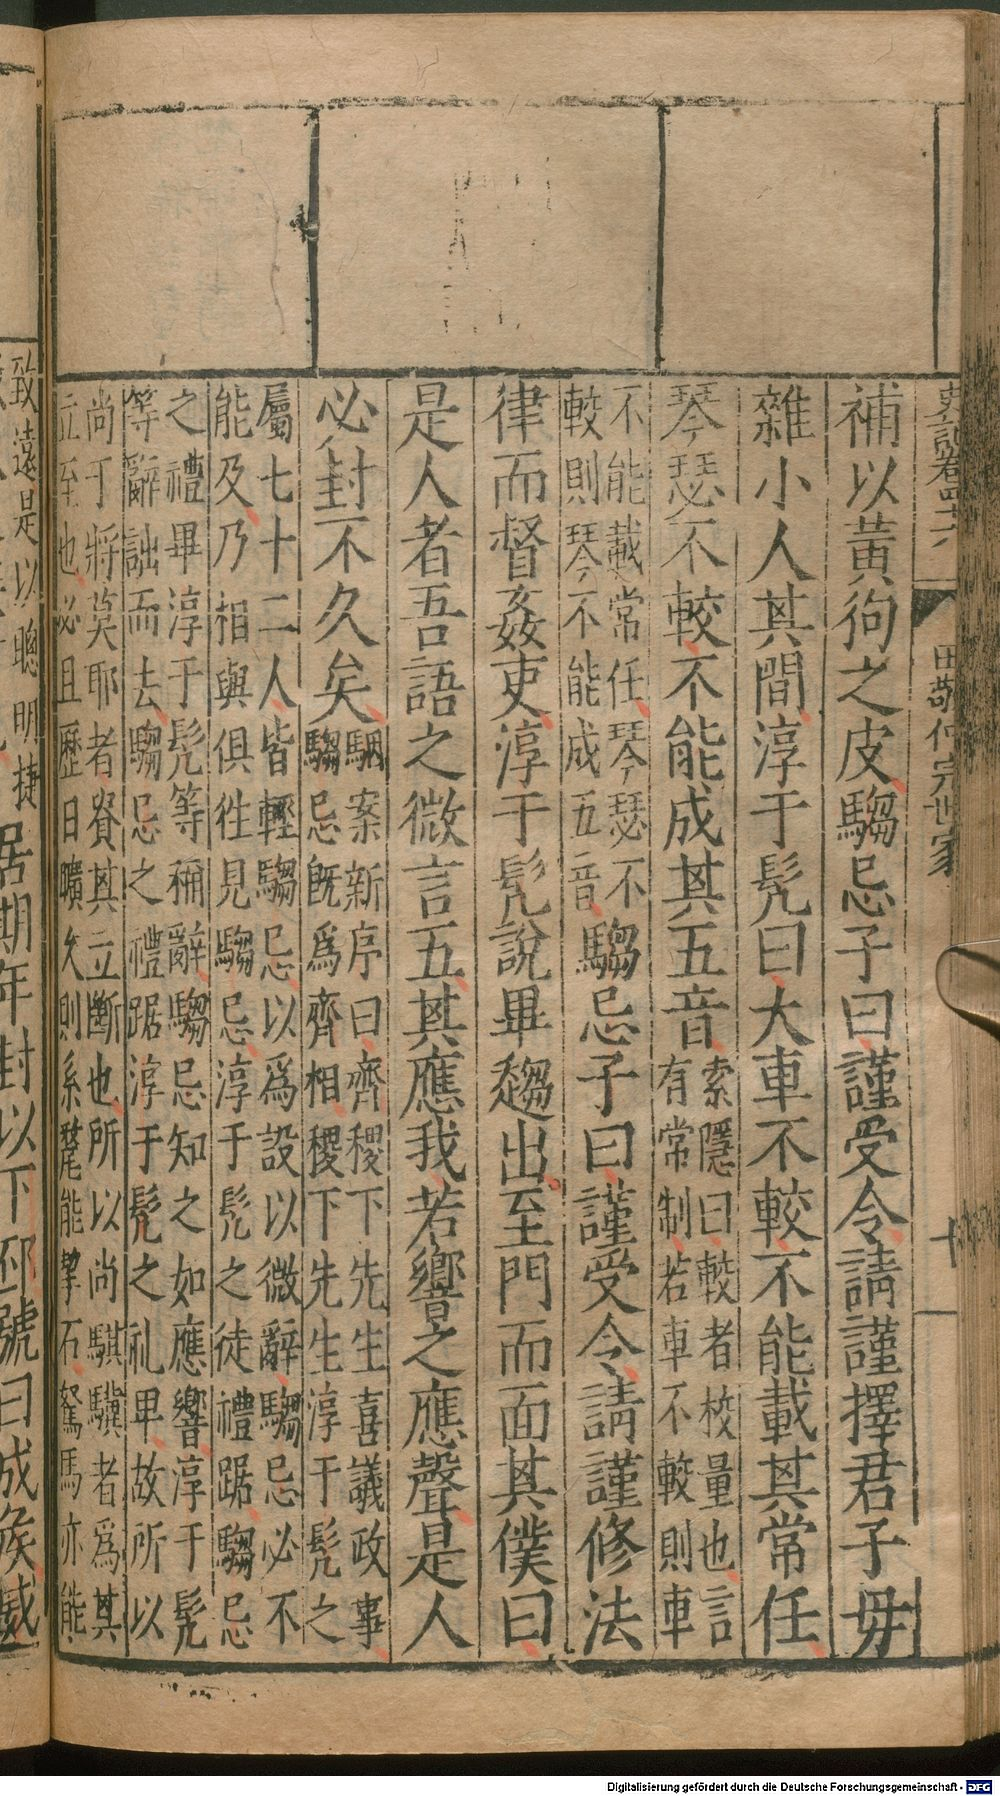 史記卷四十六
田敬仲完世家
十
補以黃狗之皮騶忌子曰謹受令請謹擇君子毋
雜小人其間淳于髠曰大車不較不能載其常任
琴瑟不較不能成其五音索隱曰較者校量也言
有常制若車不較則車
不能載常任琴瑟不
較則琴不能成五音騶忌子曰謹受令請謹修法
律而督姦吏淳于髠說畢趨出至門而面其僕曰
是人者吾語之微言五其應我若響之應聲是人
必封不久矣駰案新序曰齊稷下先生喜議政事
騶忌旣爲齊相稷下先生淳于髠之
屬七十二人皆輕騶忌以爲設以微辭騶忌必不
能及乃相與俱徃見騶忌淳于髠之徒禮踞騶忌
之禮畢淳于髠等稱辭騶忌知之如應響淳于髠
等辭詘而去騶忌之禮踞淳于髠之礼卑故所以
尚于將莫耶者貴其立斷也所以尚騏驥者爲其
立至也必且歷日曠久則系氂能挈石駑馬亦能
致遠是以聰明捷
居期年封以下邳號曰成侯威
Digitalisierung gefördert durch die Deutsche Forschungsgemeinschaft - DFG